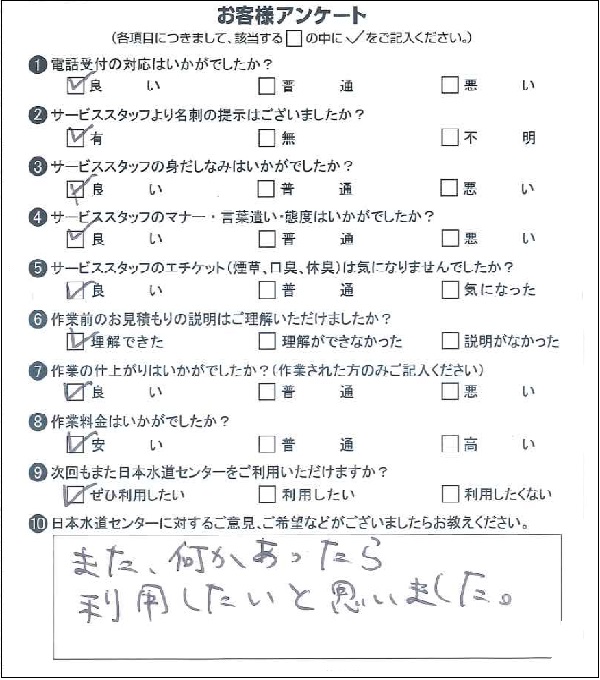 お客様アンケート
(各項目につきまして、該当する□の中に✓をご記入ください。)
❶電話受付の対応はいかがでしたか?
☑良 い □普 通 □悪 い
❷サービススタッフより名刺の提示はございましたか?
☑有 □無 □不 明
❸サービススタッフの身だしなみはいかがでしたか?
☑良 い □普 通 □悪 い
❹サービススタッフのマナー・言葉遣い・態度はいかがでしたか?
☑良 い □普 通 □悪 い
❺サービススタッフのエチケット(煙草、口臭、体臭)は気になりませんでしたか?
☑良 い □普 通 □気になった
❻作業前のお見積もりの説明はご理解いただけましたか?
☑理解できた □理解ができなかった □説明がなかった
❼作業の仕上がりはいかがでしたか?(作業された方のみご記入ください)
☑良 い □普 通 □悪 い
❽作業料金はいかがでしたか?
☑安 い □普 通 □高 い
❾次回もまた日本水道センターをご利用いただけますか?
☑ぜひ利用したい □利用したい □利用したくない
❿日本水道センターに対するご意見、ご希望などがございましたらお教えください。
また、何かあったら
利用したいと思いました。